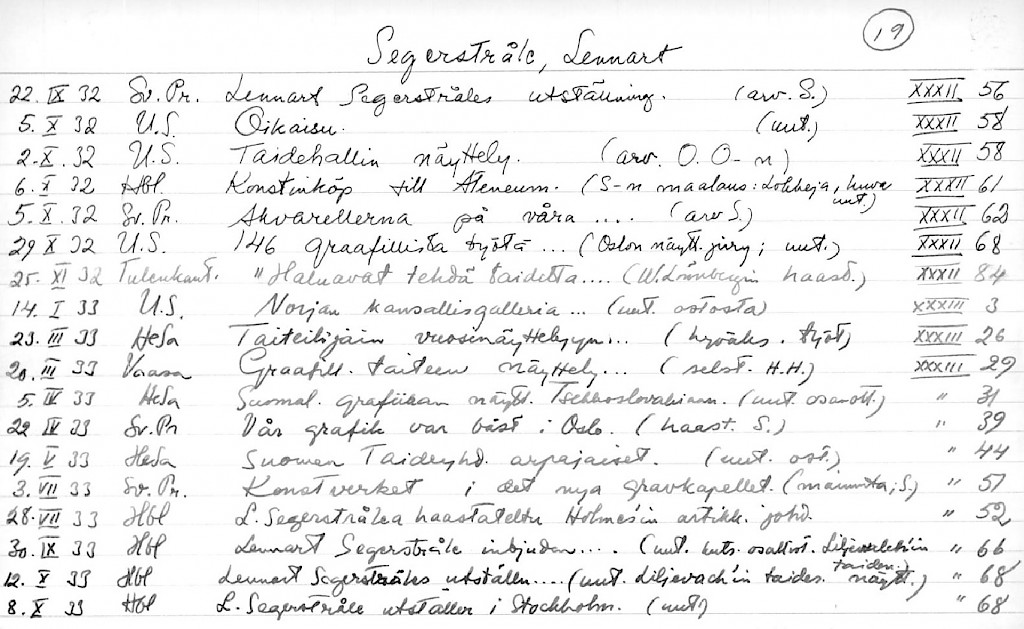 19
Segerstråle, Lennart
22. IX 32 Sv. Pr. Lennart Segerstråles utställning. (arv. S.) XXXII 56
5. X 32 U.S. Oikaisu. (uut.) XXXII 58
2. X. 32 U.S. Taidehallin näyttely. (arv. O. O-n) XXXII 58
6. X 32 Hbl. Konstinköp till Ateneum. (S-n maalaus: Lokkeja, kuva uut.) XXXII 61
5. X. 32 Sv. Pr. Akvarellerna på våra .... (arv S.) XXXII 62
29 X 32 U.S. 146 graafillista työtä ... (Oslon näytt. jury; uut.) XXXII 68
25. XI 32 Tulenkant. "Haluavat tehdä taidetta.... (W. Lönnbergin haast.) XXXII 84
14. I 33 U.S. Norjan kansallisgalleria ... (uut. ostosta) XXXIII 3
23. III 33 HeSa Taiteilijain vuosinäyttelyyn... (hyväks. työt) XXXIII 26
20. III 33 Vaasa Graafill. taiteen näyttely... (selost. H.H.) XXXIII 29
5. IV 33 HeSa Suomal. grafiikan näytt. Tsekkoslovakiaan. (uut. osanott.) " 31
22 IV 33 Sv. Pr Vår grafik var bäst i Oslo. (haast. S.) " 39
19. V 33 HeSa Suomen Taideyhd. arpajaiset. (uut. ost.) " 44
3. VII 33 Sv. Pr. Konstverket i det nya gravkapellet. (maininta; S.) " 51
28. VII 33 Hbl L. Segerstrålea haastateltu Holmes'in artikk. joht. " 52
30. IX 33 Hbl Lennart Segerstråle inbjudan.... (uut. kuts. osallist. Liljevalch'in taiden.) " 66
12. X 33 Hbl Lennart Segerstråles utställn.... (uut. Liljevach'in taides. näytt.) " 68
8. X 33 Hbl L. Segerstråle utställer i Stockholm. (uut) " 68